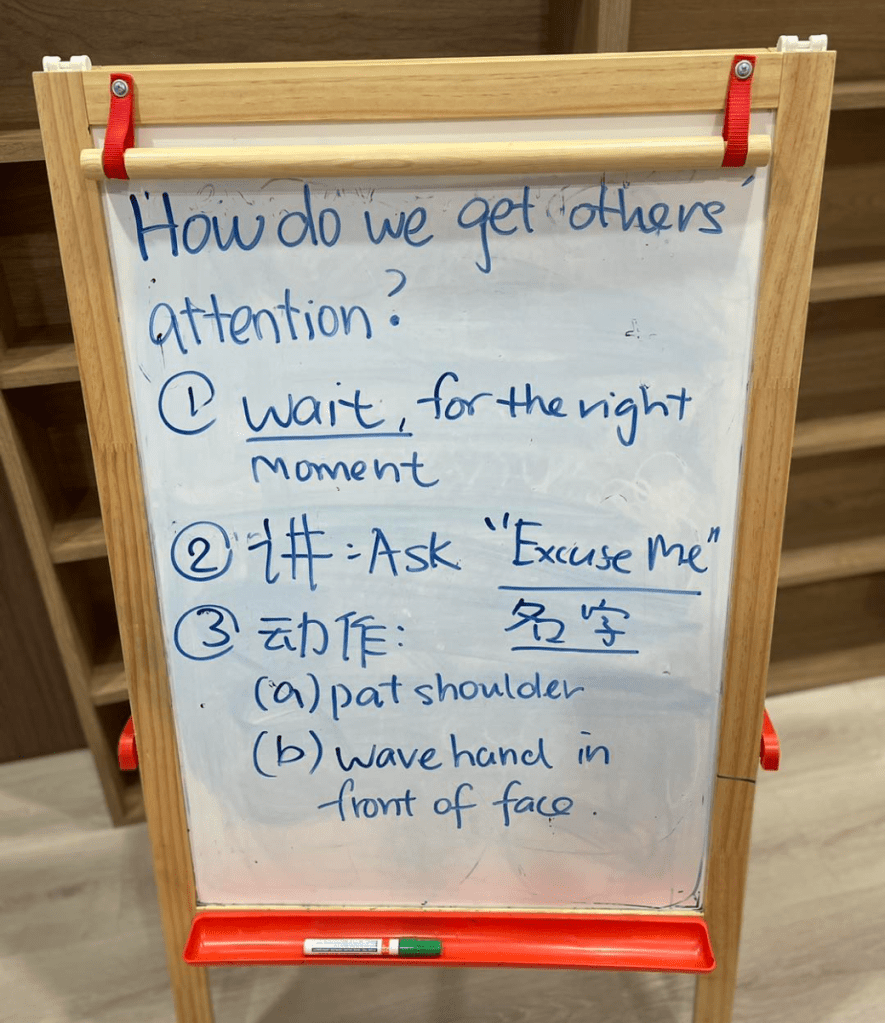 How do we get others'
attention?
① wait, for the right
moment
② 讲:Ask "Excuse Me"
名字
③ 动作:
(a) pat shoulder
(b) wave hand in
front of face.